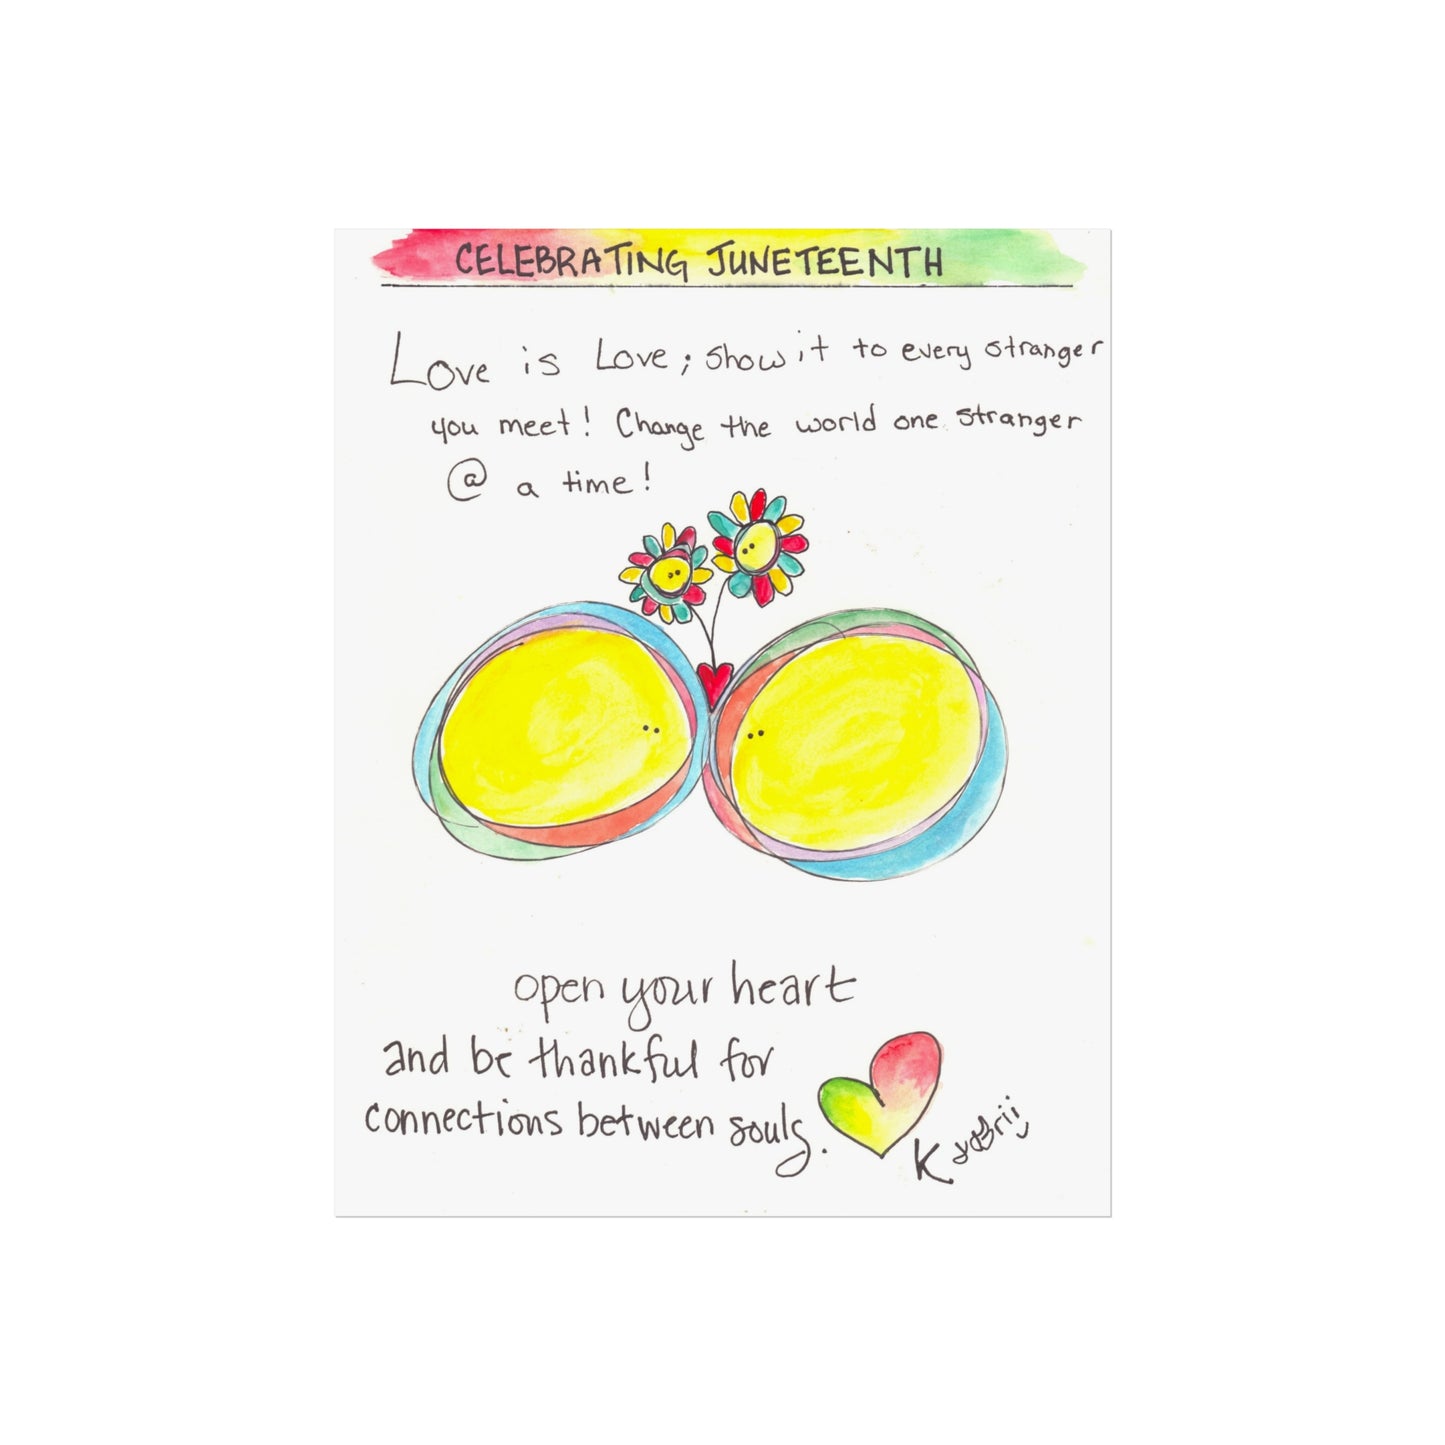 CELEBRATING JUNETEENTH
Love is Love; show it to every stranger
you meet! Change the world one stranger
@ a time!
open your heart
and be thankful for
connections between souls.